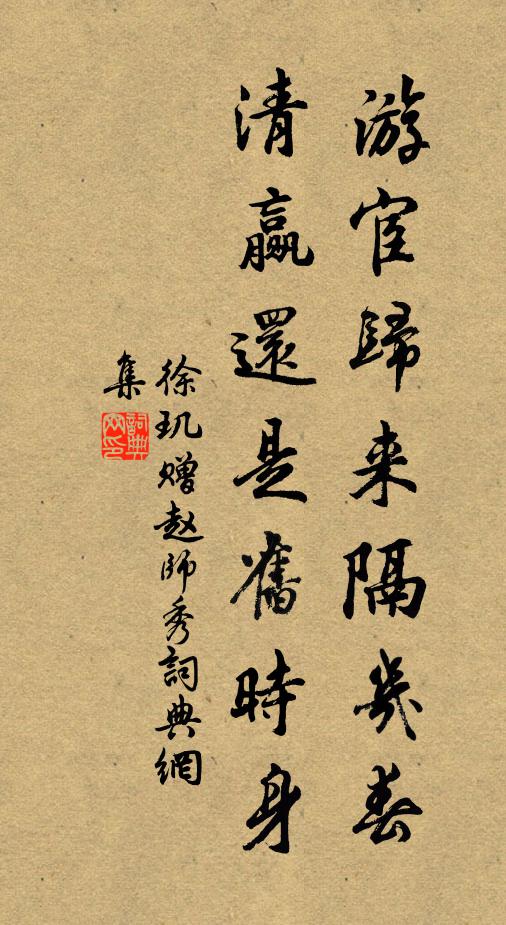 游宦歸来隔幾春
清羸還是舊時身
徐玑赠赵師秀詞典網
集
詞典網印